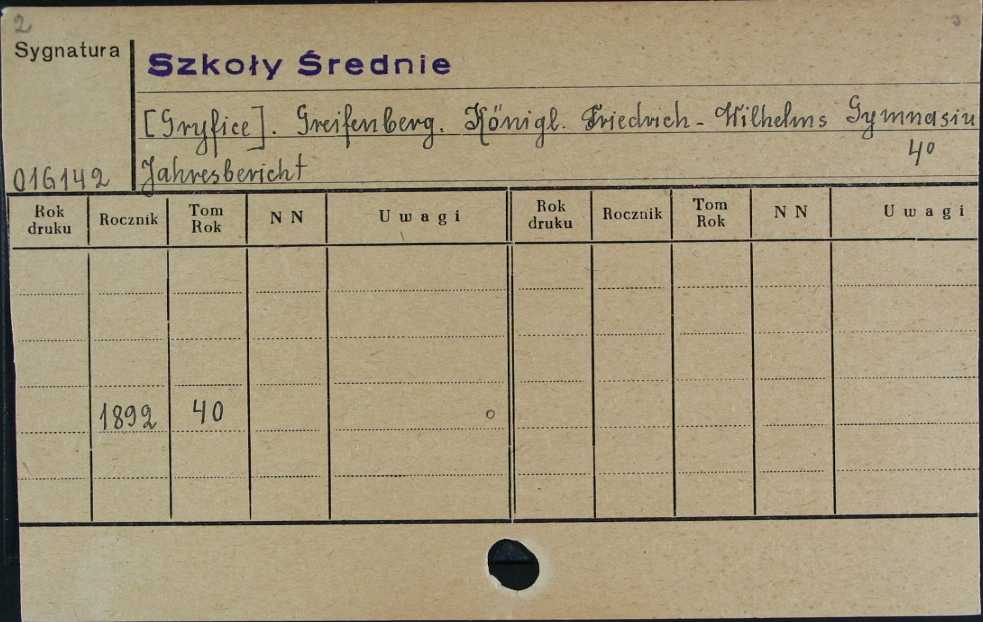 2
Sygnatura
Szkoły Średnie
[Gryfice]. Greifenberg. Königl. Friedrich - Wilhelms Gymnasiu
4°
016142 Jahresbericht
Rok druku Rocznik Tom Rok N N Uwagi Rok druku Rocznik Tom Rok N N Uwagi
1892 40